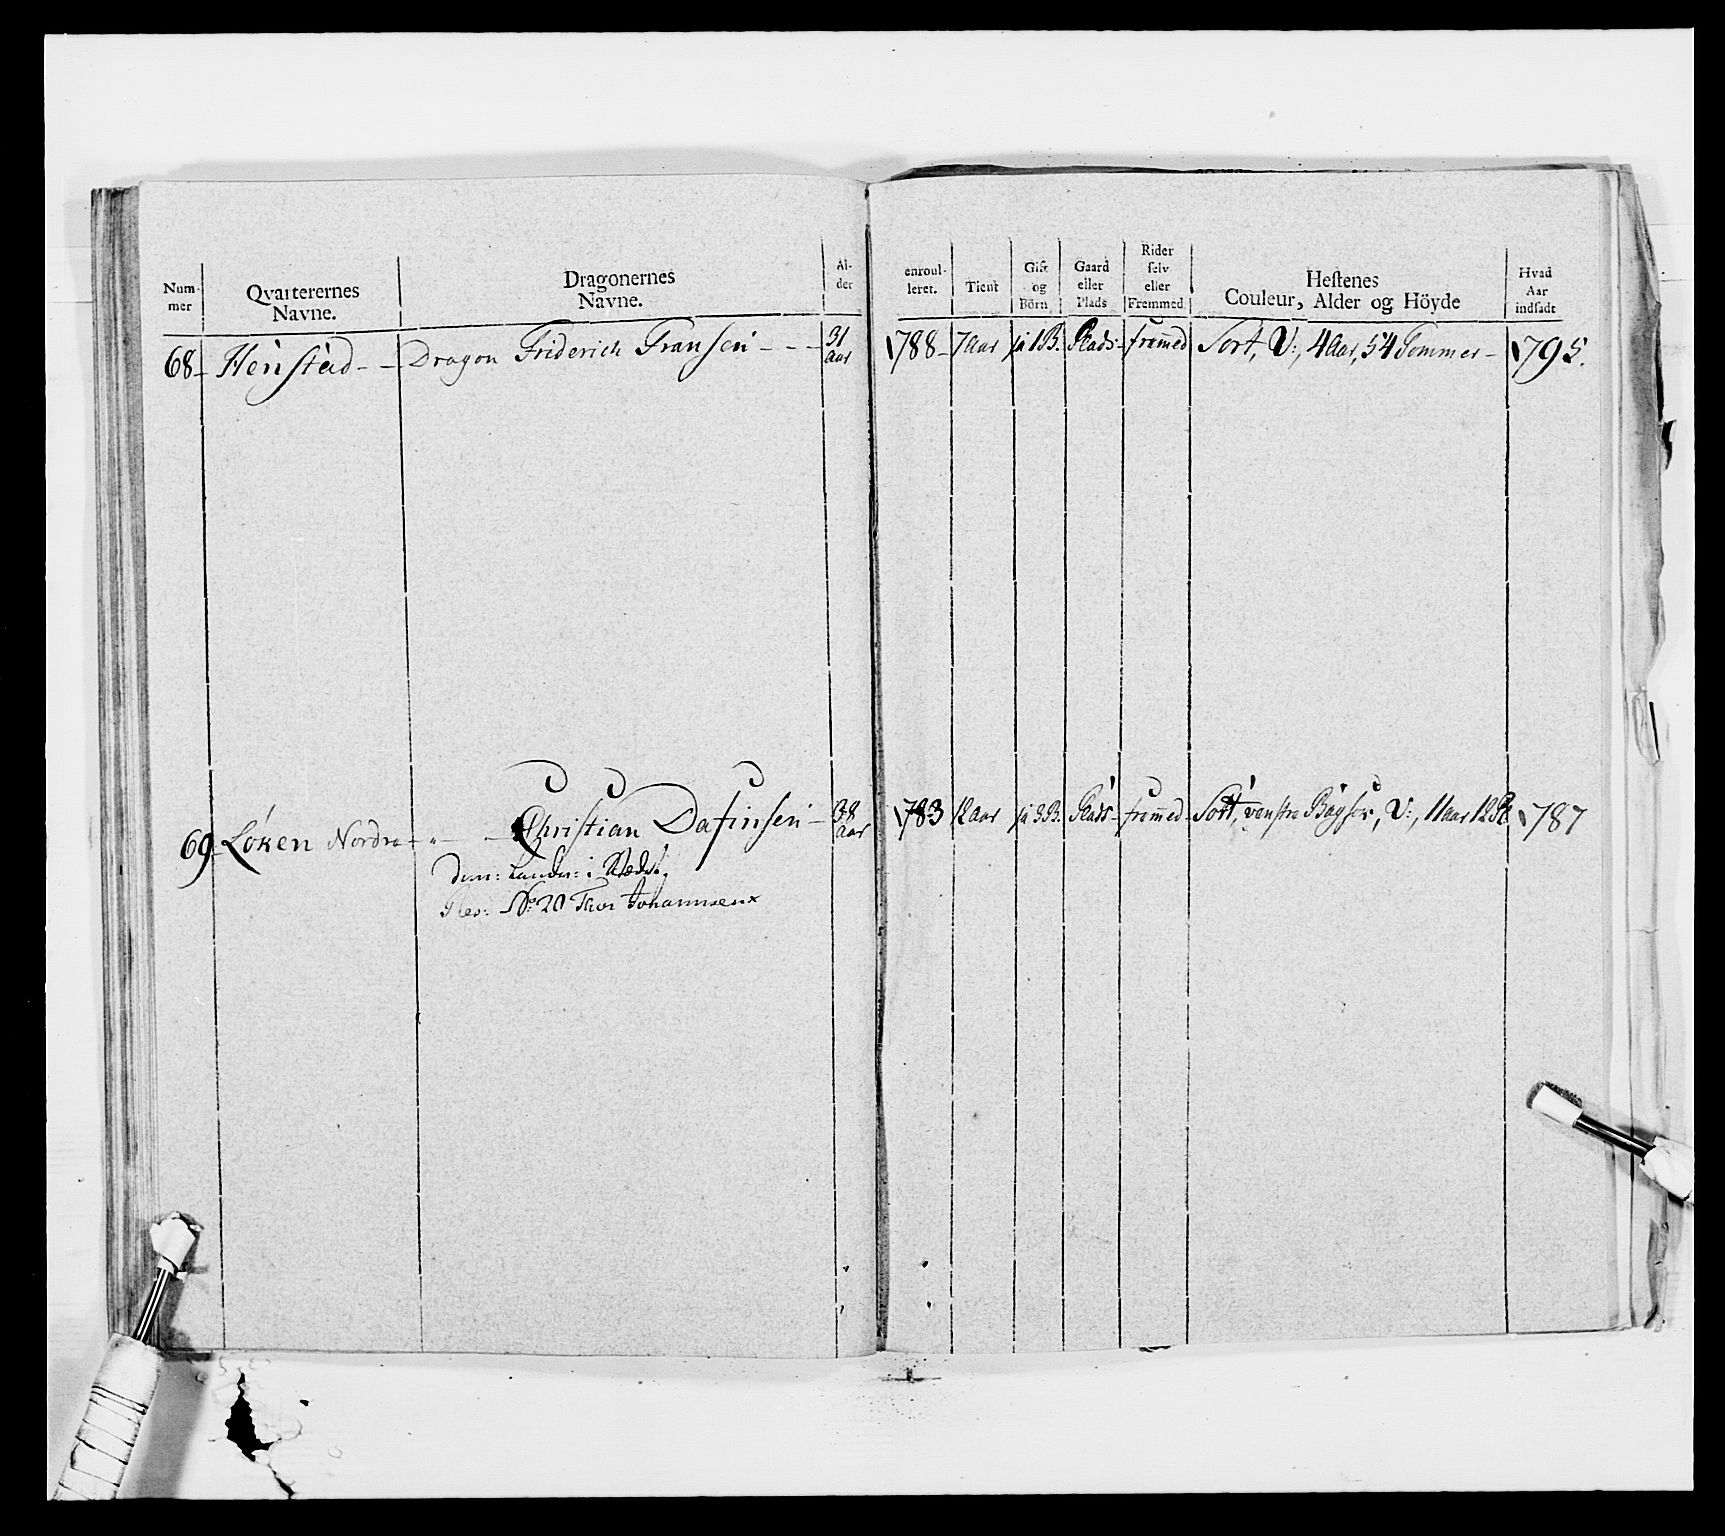 Num-
mer
Qvarterernes
Navne.
Dragonernes
Navne.
Al-
der
enroul-
leret.
Tient
Gift
og
Börn
Gaard
eller
Plads
Rider
selv
eller
Fremmed
Hestenes
Couleur, Alder og Höyde
Hvad
Aar
indsadt
68 - Henstad - - Dragon Friderich Fransen - - - 31 Aar 1788 - 7 Aar ja 1 B. Plads - fremed Sort, V:, 4 Aar, 54 Tommer - 1795.
69 - Løken Nordre - " - Christian Dafinsen - 38 Aar 1783 12 Aar ja 3 B. Plads - fremmed - Sort, venstre Bagfod, V:, 11 aar 1787
i Stædet
No: 20 Thor Johannsen x